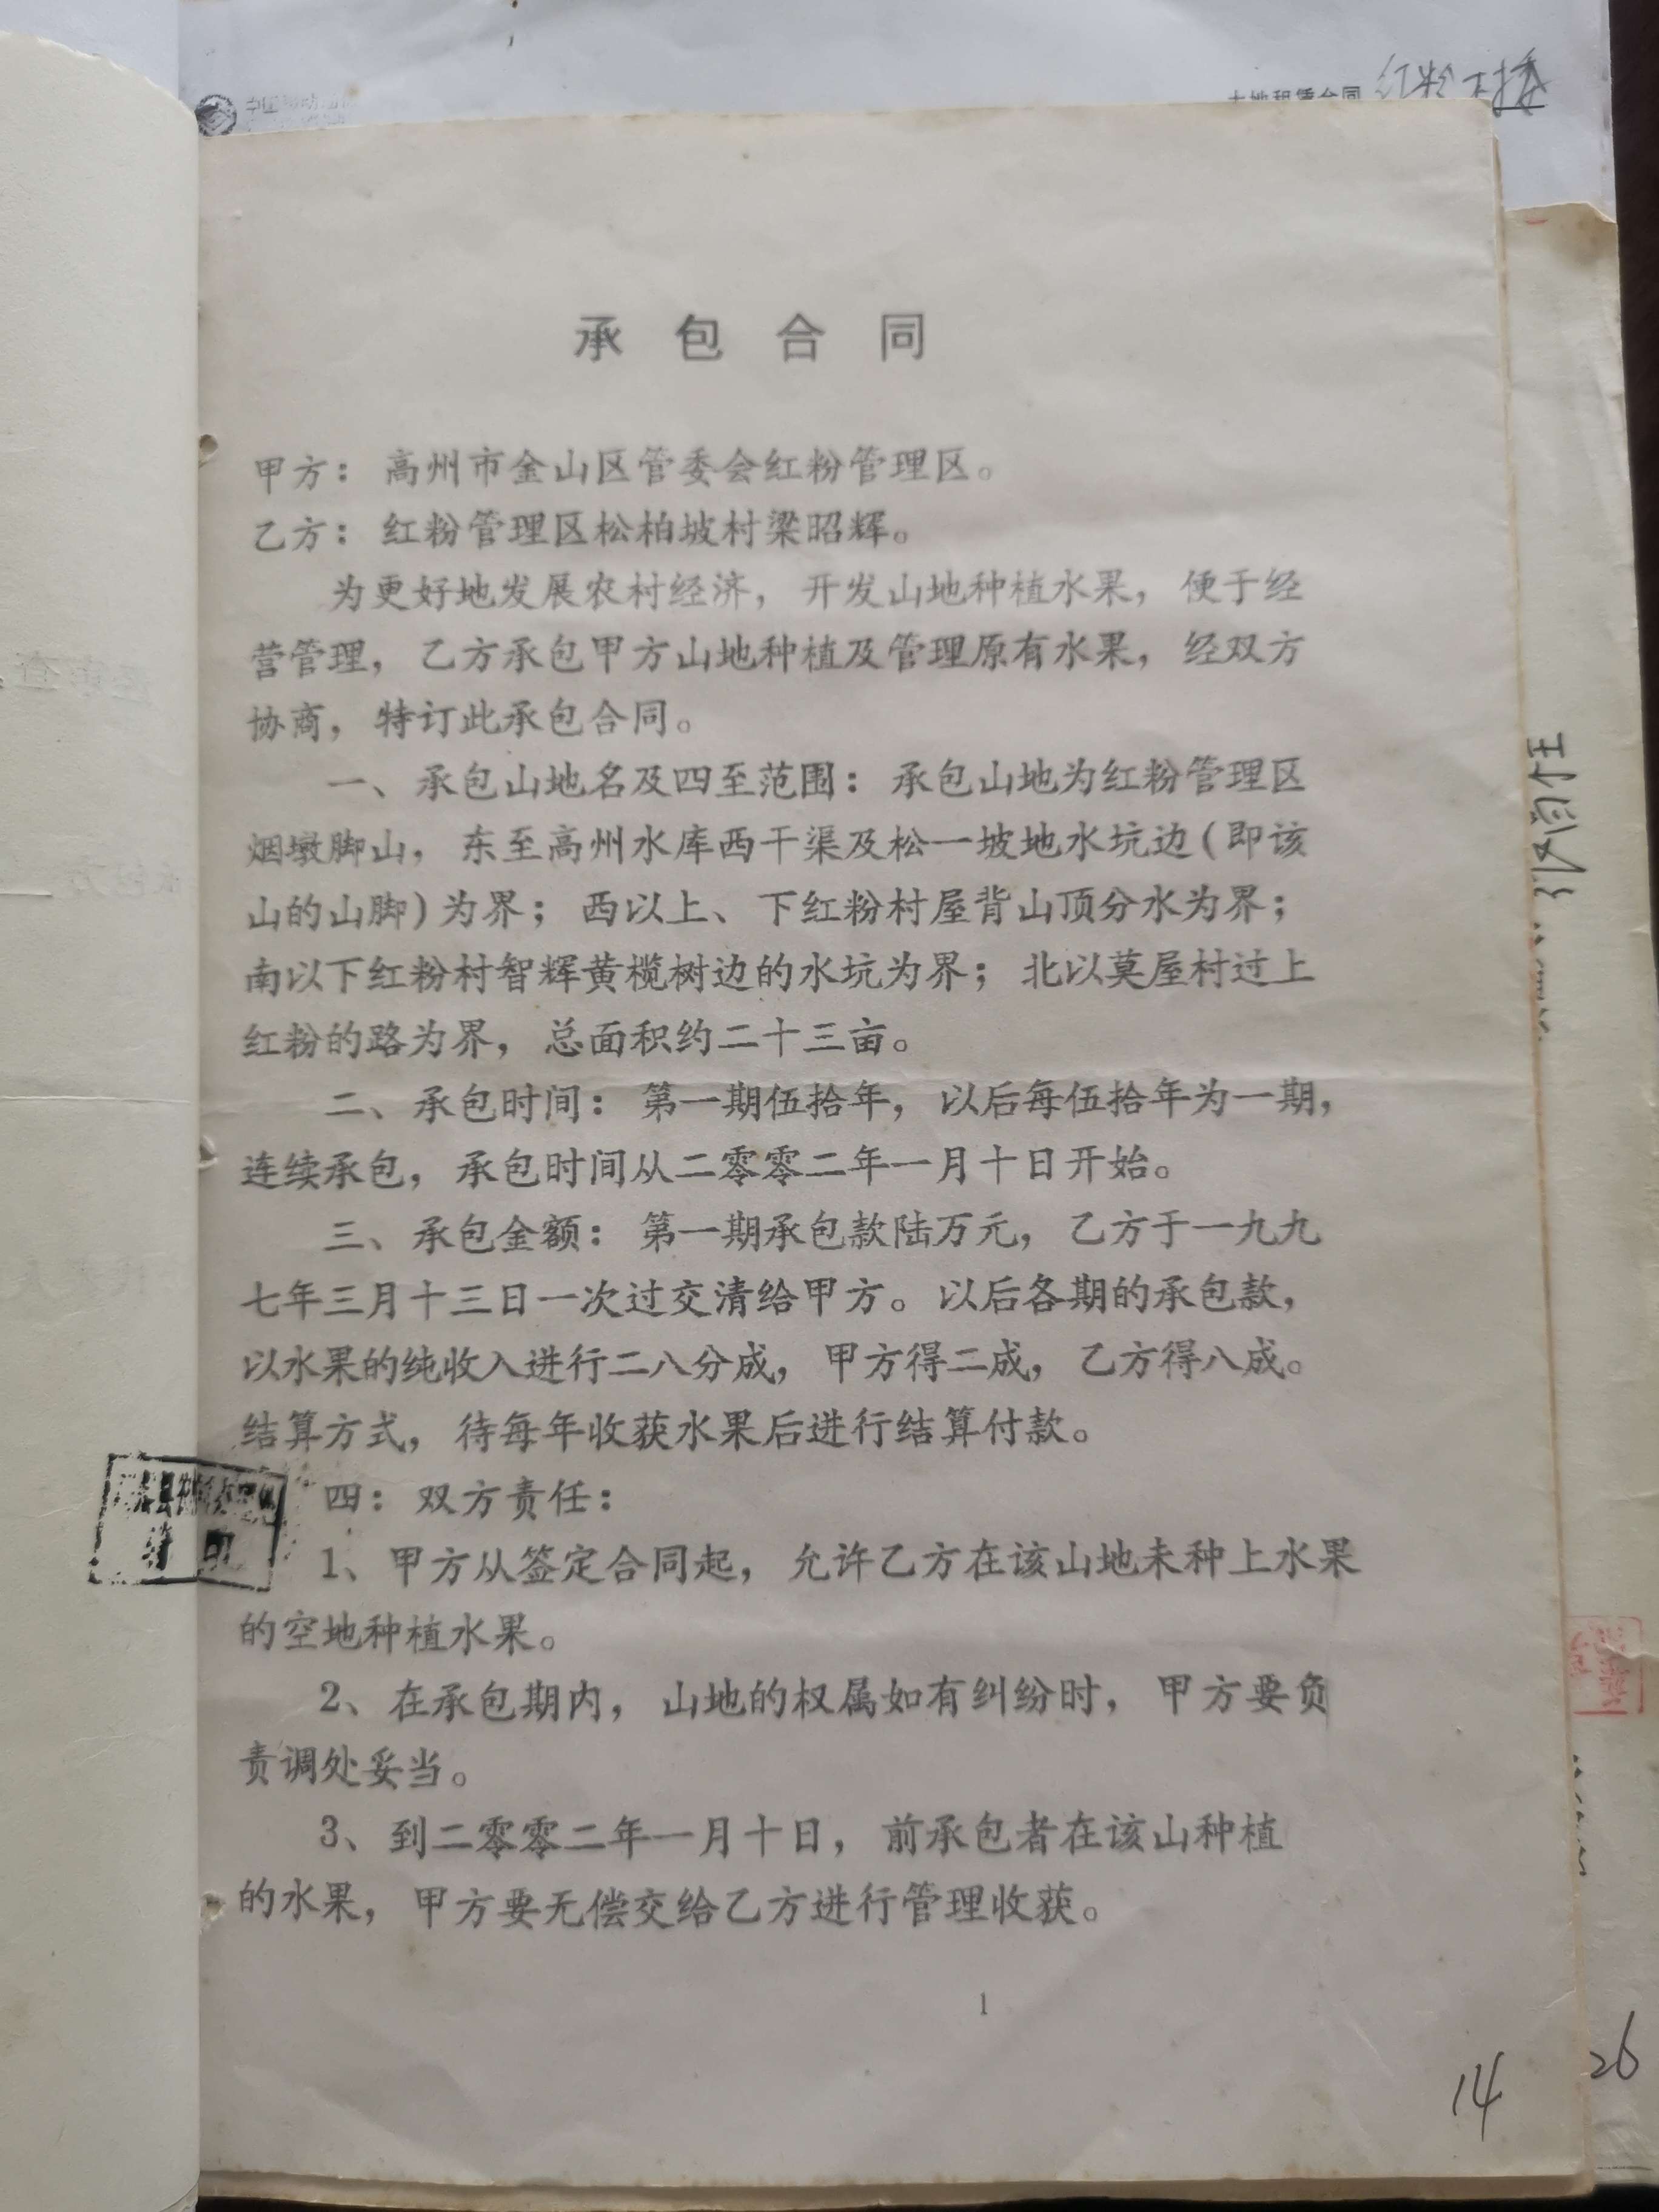 土地租赁合同 红粉
承包合同
甲方：高州市金山区管委会红粉管理区。
乙方：红粉管理区松柏坡村梁昭辉。
为更好地发展农村经济，开发山地种植水果，便于经
营管理，乙方承包甲方山地种植及管理原有水果，经双方
协商，特订此承包合同。
一、承包山地名及四至范围：承包山地为红粉管理区
烟墩脚山，东至高州水库西干渠及松一坡地水坑边(即该
山的山脚)为界；西以上、下红粉村屋背山顶分水为界；
南以下红粉村智辉黄榄树边的水坑为界；北以莫屋村过上
红粉的路为界，总面积约二十三亩。
二、承包时间：第一期伍拾年，以后每伍拾年为一期，
连续承包，承包时间从二零零二年一月十日开始。
三、承包金额：第一期承包款陆万元，乙方于一九九
七年三月十三日一次过交清给甲方。以后各期的承包款，
以水果的纯收入进行二八分成，甲方得二成，乙方得八成。
结算方式，待每年收获水果后进行结算付款。
四：双方责任：
1、甲方从签定合同起，允许乙方在该山地未种上水果
的空地种植水果。
2、在承包期内，山地的权属如有纠纷时，甲方要负
责调处妥当。
3、到二零零二年一月十日，前承包者在该山种植
的水果，甲方要无偿交给乙方进行管理收获。
1
14
26